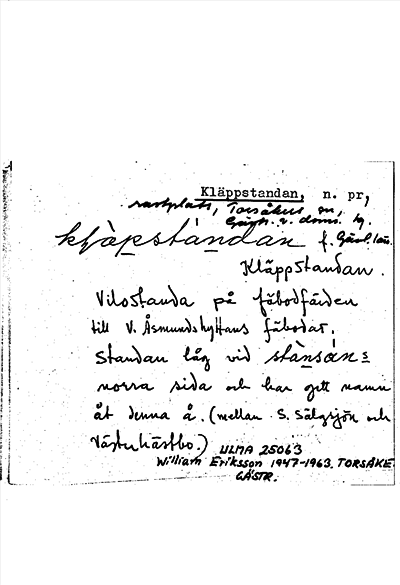 Kläppstandan, n. pr,
rastplats, Torsåkers sn,
Gästr. v. doms. hg.
kljä̀pstándan f. Gävl. län.
Kläppstandan.
Vilostanda på fäbodfärden
till V. Åsmundshyttans fäbodar.
Standan låg vid stànsáns
norra sida och har gett namn
åt denna å. (mellan S. Sälgsjön och
Västerhästbo.) ULMA 25063
William Eriksson 1947-1963. TORSÅKE
GÄSTR.